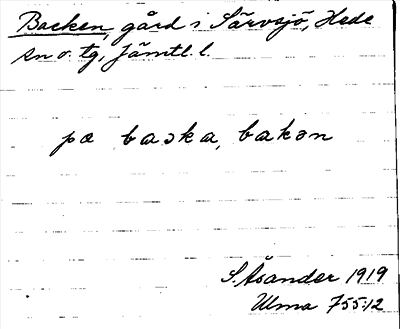 Backen, gård i Särvsjö, Hede
sn o. tg, Jämtl. l.
pα bαɔka, bakən
S. Åsander 1919
Ulma 755:12